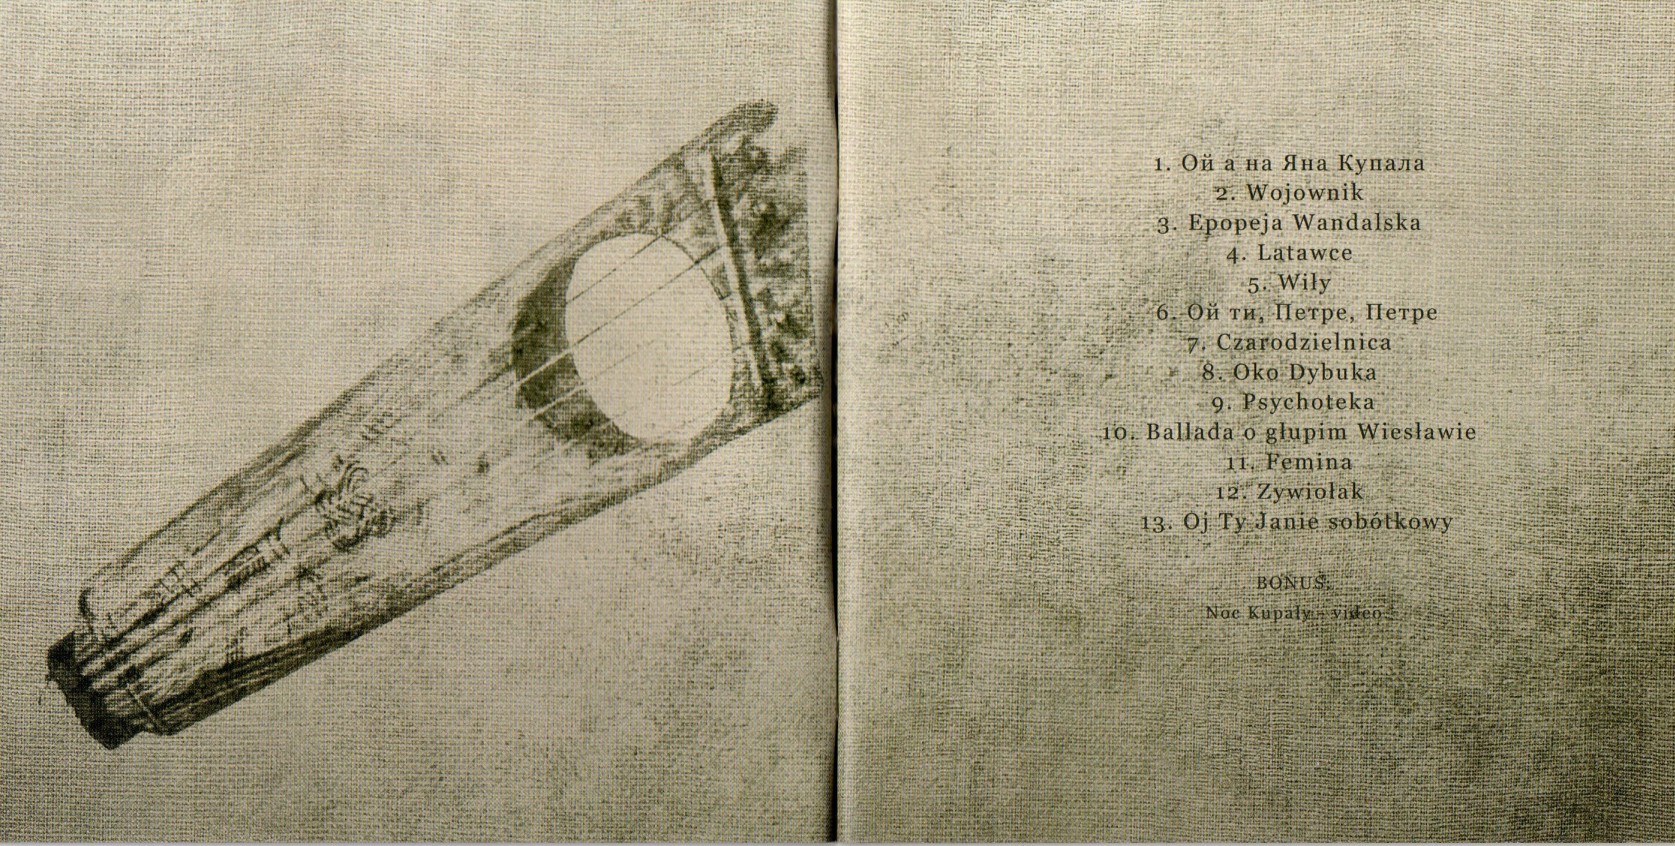 1. Ой а на Яна Купала
2. Wojownik
3. Epopeja Wandalska
4. Latawce
5. Wiły
6. Ой ти, Петре, Петре
7. Czarodzielnica
8. Oko Dybuka
9. Psychoteka
10. Ballada o głupim Wiesławie
11. Femina
12. Żywiołak
13. Oj Ty Janie sobótkowy
BONUS:
Noc Kupały - video